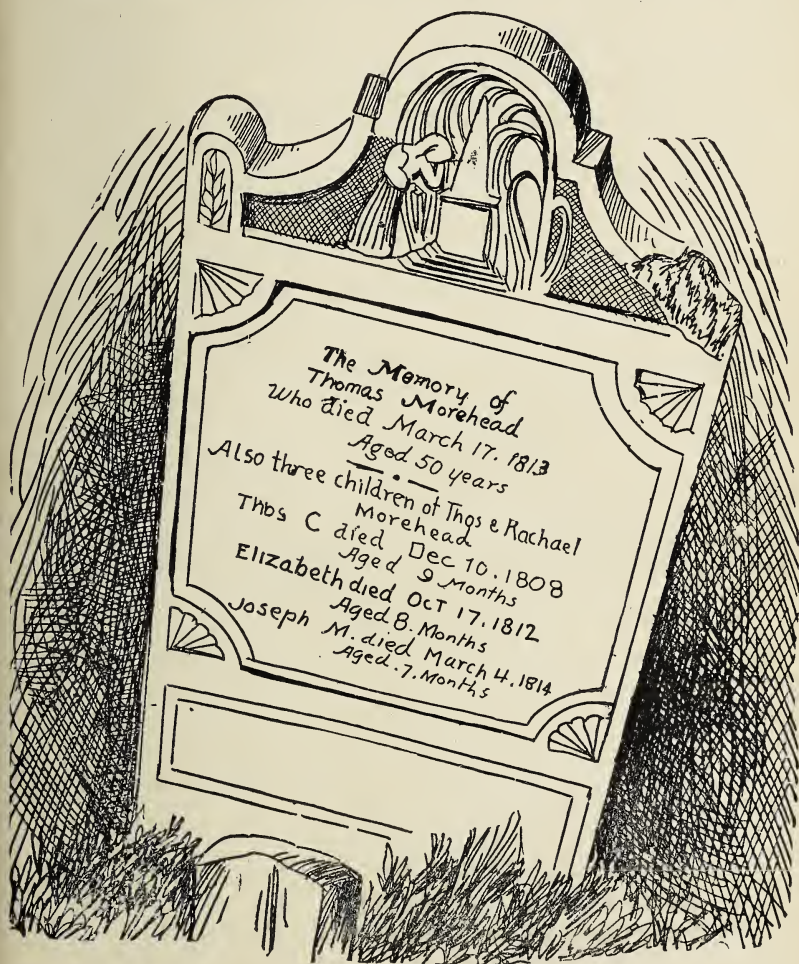 The Memory of
Thomas Morehead
Who died March 17. 1813
Aged 50 years
Also three children of Thos & Rachael
Morehead
Thos C died Dec 10. 1808
Aged 9 Months
Elizabeth died Oct 17. 1812
Aged 8. Months
Joseph M. died March 4. 1814
Aged. 7. Months